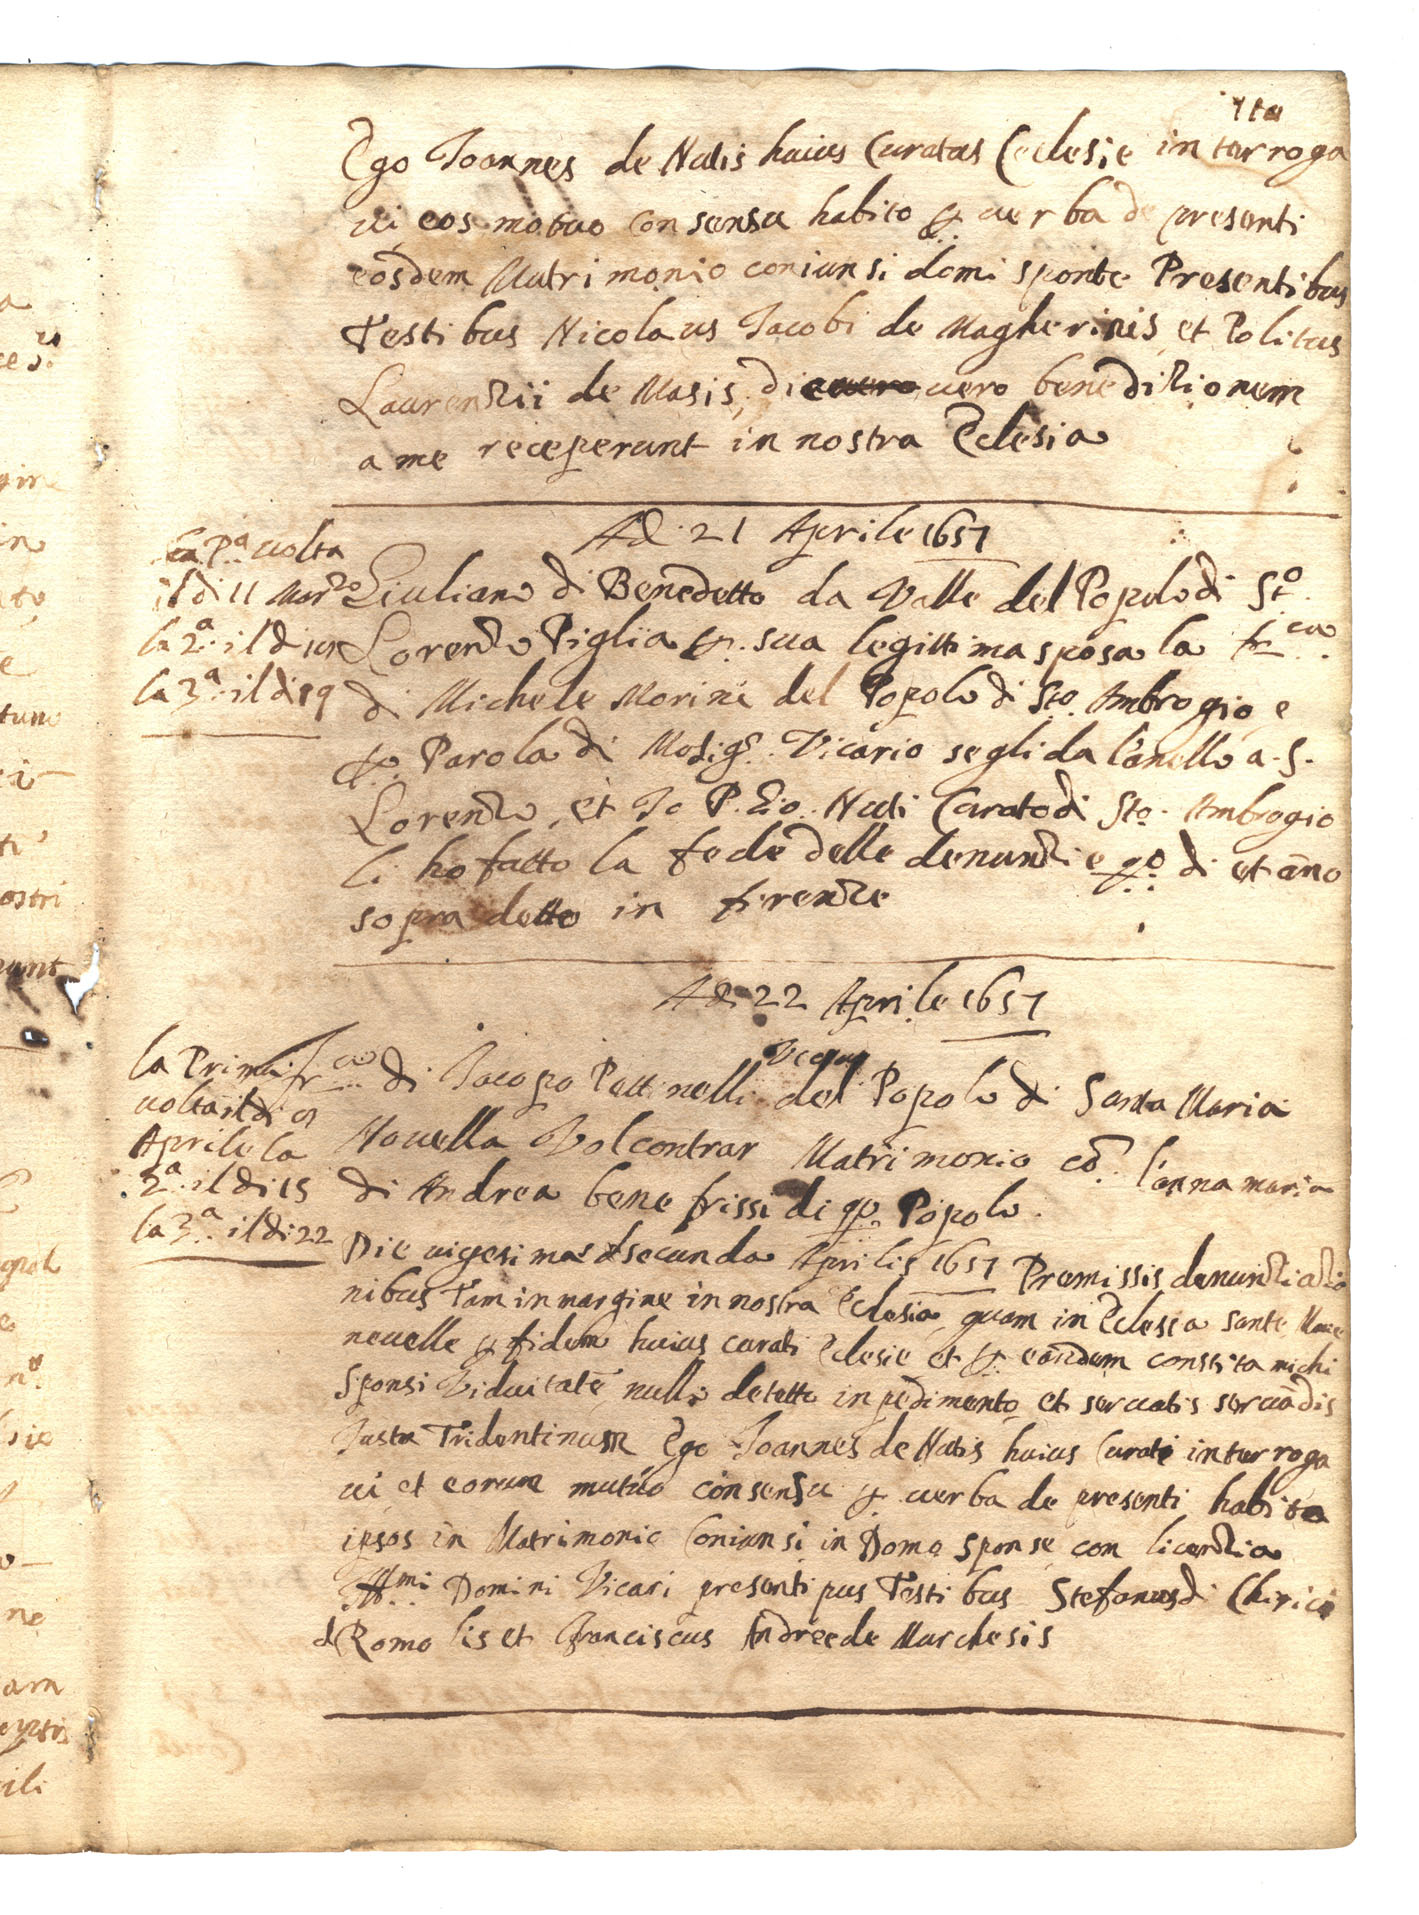 Ego Joannes de Natis huius Curatus Eclesie interroga
vi eos motuo consensu habito p. uerba de presenti
eosdem Matrimonio coniunsi domi sponte Presentibus
Testibus Nicolaus Jacobi de Magherinis et Politus
Laurenzii de Masis, uero benedizionem
a me receperunt in nostra Eclesia
Ad 21 Aprile 1657
la Pa uolta
il di 11 Marzo
la 2a il di
la 3a il di 19
Giuliano di Benedetto da Valle del Popolo di Sto
Lorenzo Piglia p. sua legittima sposa la frca
di Michele Morini del Popolo di Sto Ambrogio e
po Parola di Mosigr Vicario se gli da l'anello a S.
Lorenzo, et Io P. Gio. Nati Curato di Sto Ambrogio
li ho fatto la fede delle denunzie qo di et ano
sopra detto in firenze
Ad 22 Aprile 1657
la Prima
uolta il di 9
Aprile la
2a il di 15
la 3a il di 22
frco di Jacopo Pettinelli del Popolo di Santa Maria
Nouella Vol contrar Matrimonio co l'anna maria
di Andrea bene frissi di qo Popolo.
Die uigesima secunda Aprilis 1657 Premissis denunziatio
nibus Tam in margine in nostra Eclesia quam in Eclesia Sante Marie
nouelle p fidem huius curati Eclesie et p. eandem constita michi
Sponsi Viduitate nullo detetto inpedimento et seruatis seruadis
Justa Tridentinum Ego Joannes de Natis huius Curati interroga
ui et eorum mutuo consensu p. uerba de presenti habito
ipsos in Matrimonio Coniunsi in Domo Sponse con licenzia
Domini Vicari presentipus Testibus Stefanus di Chirici
d Romolis et Franciscus Andree de Marchesis